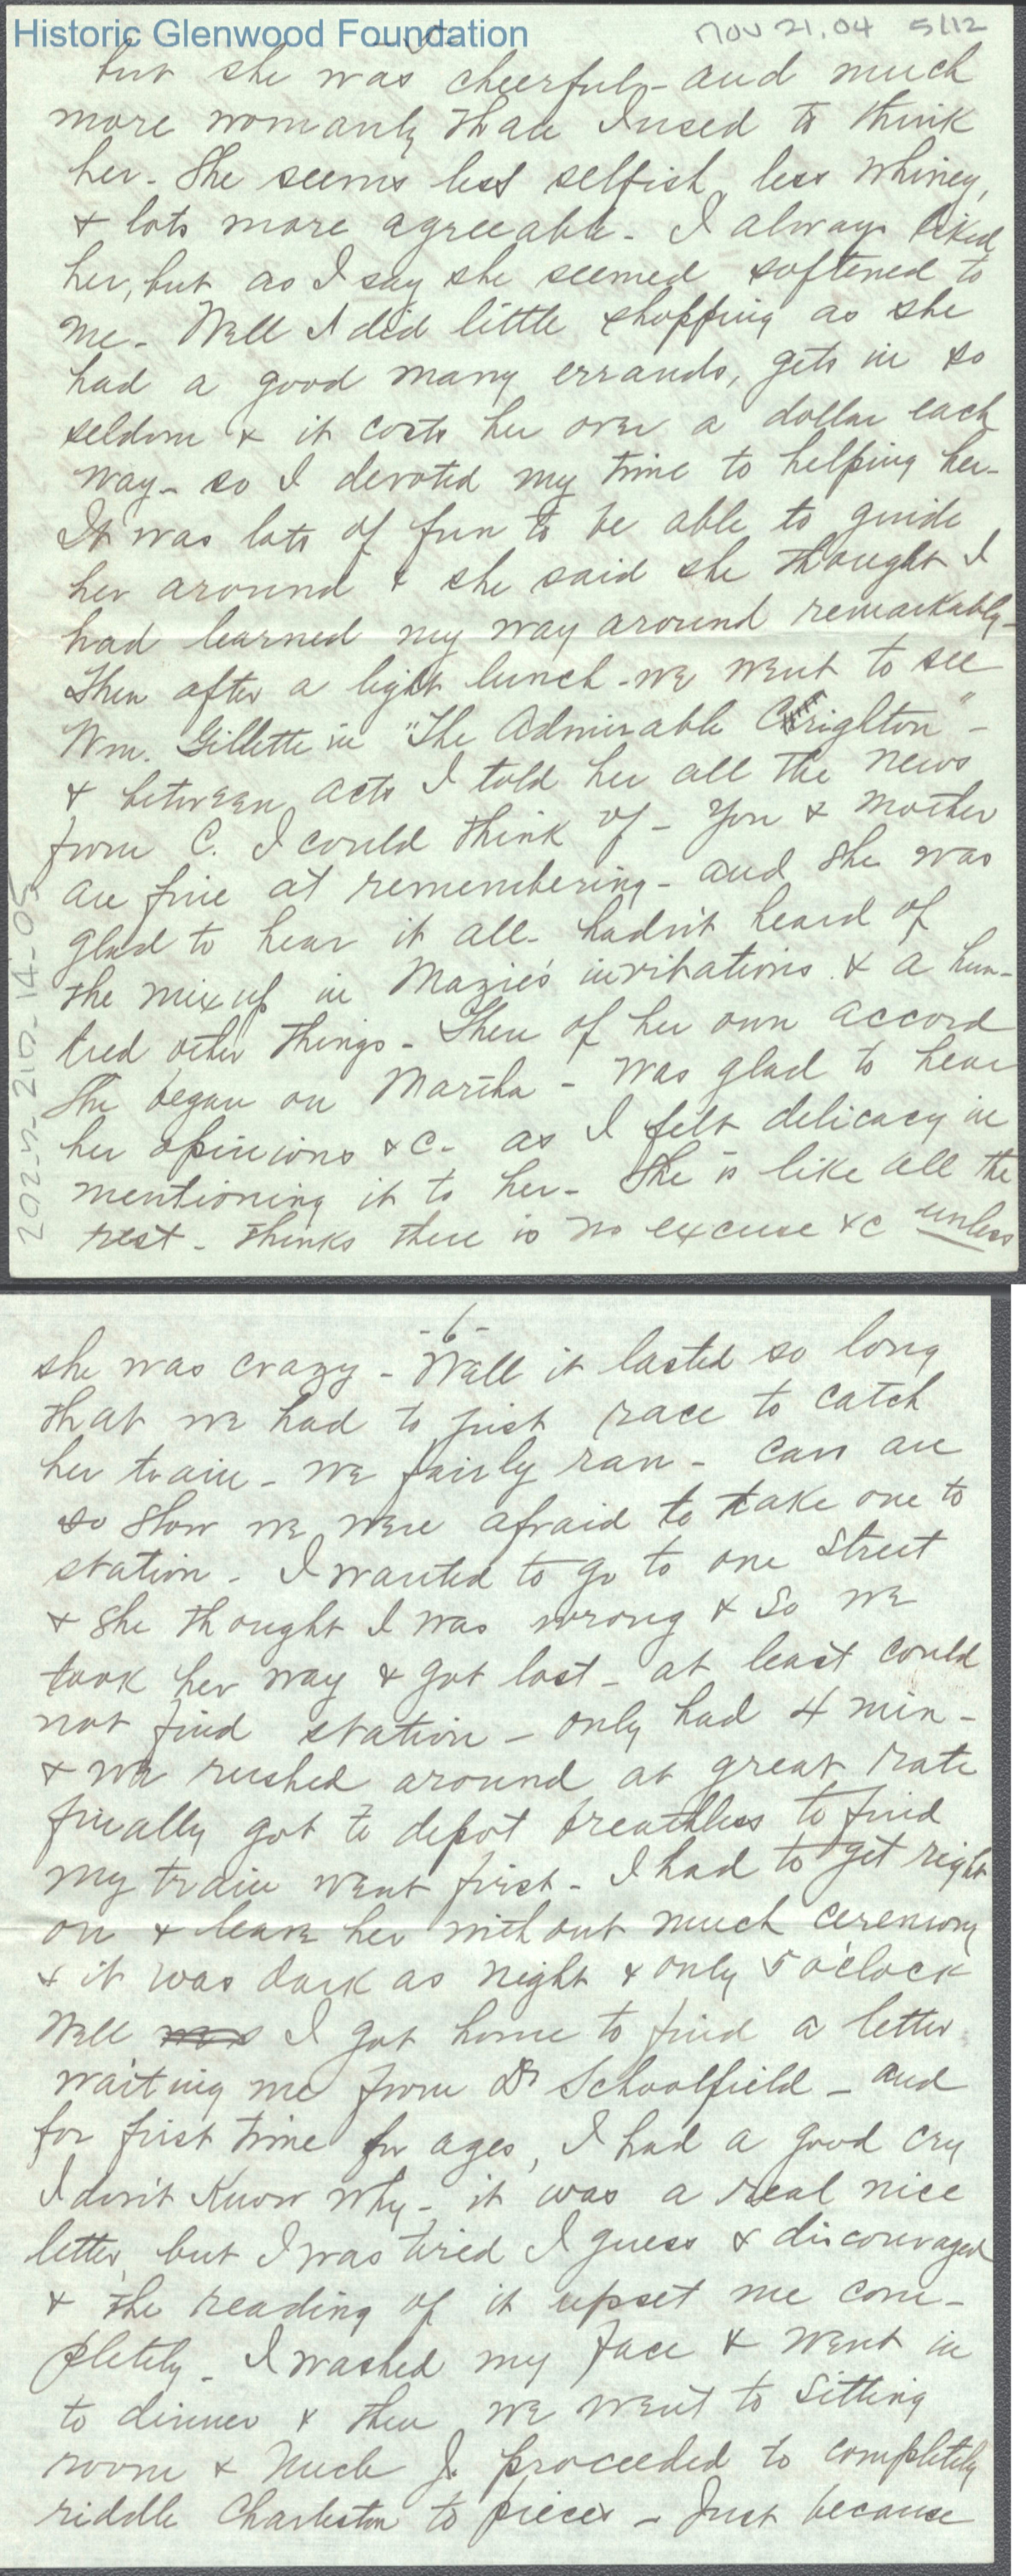 Historic Glenwood Foundation
NOV 21, 04 5/12
but she was cheerful - and much
more womanly than I used to think
her - She seems less selfish, less whiney,
& lots more agreeable - I always liked
her, but as I say she seemed softened to
me - Well I did little shopping as she
had a good many errands, gets in so
seldom & it costs her over a dollar each
way - so I devoted my time to helping her -
It was lots of fun to be able to guide
her around & she said she thought I
had learned my way around remarkably -
Then after a light lunch - we went to see
Wm. Gillette in "The Admirable Crighton" -
& between acts I told her all the news
from C. I could think of - You & Mother
are fine at remembering - and she was
glad to hear it all - hadn't heard of
the mix up in Mazie's invitations & a hun-
dred other things - Then of her own accord
she began on Martha - was glad to hear
her opinions &c - as I felt delicacy in
mentioning it to her - She is like all the
rest - thinks there is no excuse &c unless
202-n-210-14-05
- 6 -
she was crazy - Well it lasted so long
that we had to just race to catch
her train - we fairly ran - cars are
so slow we were afraid to take one to
station - I wanted to go to one street
& she thought I was wrong & so we
took her way & got lost - at least could
not find station - only had 4 min -
& we rushed around at great rate
finally got to depot breathless to find
my train went first - I had to get right
on & leave her without much ceremony
& it was dark as night & only 5 o'clock
Well I got home to find a letter
waiting me from Dr Schoolfield - and
for first time for ages, I had a good cry
I don't know why - it was a real nice
letter, but I was tired I guess & discouraged
& the reading of it upset me com-
pletely - I washed my face & went in
to dinner & then we went to sitting
room & J. proceeded to completely
riddle Charleston to pieces - Just because